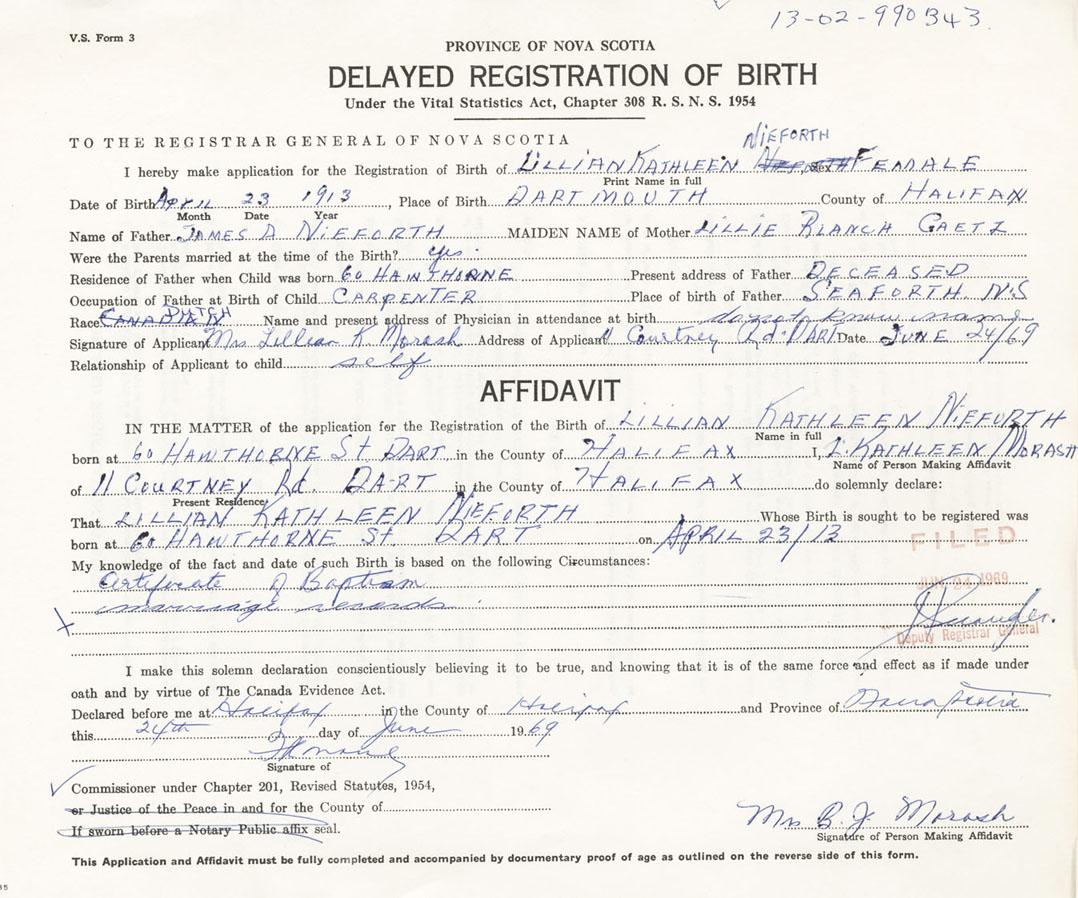 13-02-990343
V.S. Form 3
PROVINCE OF NOVA SCOTIA
DELAYED REGISTRATION OF BIRTH
Under the Vital Statistics Act, Chapter 308 R. S. N. S. 1954
TO THE REGISTRAR GENERAL OF NOVA SCOTIA
NIEFORTH
I hereby make application for the Registration of Birth of LILLIAN KATHLEEN sex FEMALE
Print Name in full
Date of Birth APRIL 23 1913, Place of Birth DARTMOUTH County of HALIFAX
Month Date Year
Name of Father JAMES A NIEFORTH MAIDEN NAME of Mother LILLIE BLANCH GAETZ
Were the Parents married at the time of the Birth? yes.
Residence of Father when Child was born 60 HAWTHORNE Present address of Father DECEASED
Occupation of Father at Birth of Child CARPENTER Place of birth of Father SEAFORTH N.S
Race CANADIAN DUTCH Name and present address of Physician in attendance at birth do not know name
Signature of Applicant Mrs Lillian K Morash Address of Applicant 11 Courtney Rd. DART Date JUNE 24/69
Relationship of Applicant to child self
AFFIDAVIT
IN THE MATTER of the application for the Registration of the Birth of LILLIAN KATHLEEN NIEFORTH
Name in full
born at 60 HAWTHORNE St DART in the County of HALIFAX I, L. KATHLEEN MORASH
Name of Person Making Affidavit
of 11 COURTNEY Rd. DART in the County of HALIFAX do solemnly declare:
Present Residence
That LILLIAN KATHLEEN NIEFORTH Whose Birth is sought to be registered was
born at 60 HAWTHORNE St DART on APRIL 23/13
FILED
My knowledge of the fact and date of such Birth is based on the following Circumstances:
Certificate of Baptism
JUN 24 1969
marriage records.
Deputy Registrar General
I make this solemn declaration conscientiously believing it to be true, and knowing that it is of the same force and effect as if made under
oath and by virtue of The Canada Evidence Act.
Declared before me at Halifax in the County of Halifax and Province of Nova Scotia
this 24th day of June 1969
Signature of
Commissioner under Chapter 201, Revised Statutes, 1954,
or Justice of the Peace in and for the County of
If sworn before a Notary Public affix seal.
Mrs B. J. Morash
Signature of Person Making Affidavit
This Application and Affidavit must be fully completed and accompanied by documentary proof of age as outlined on the reverse side of this form.